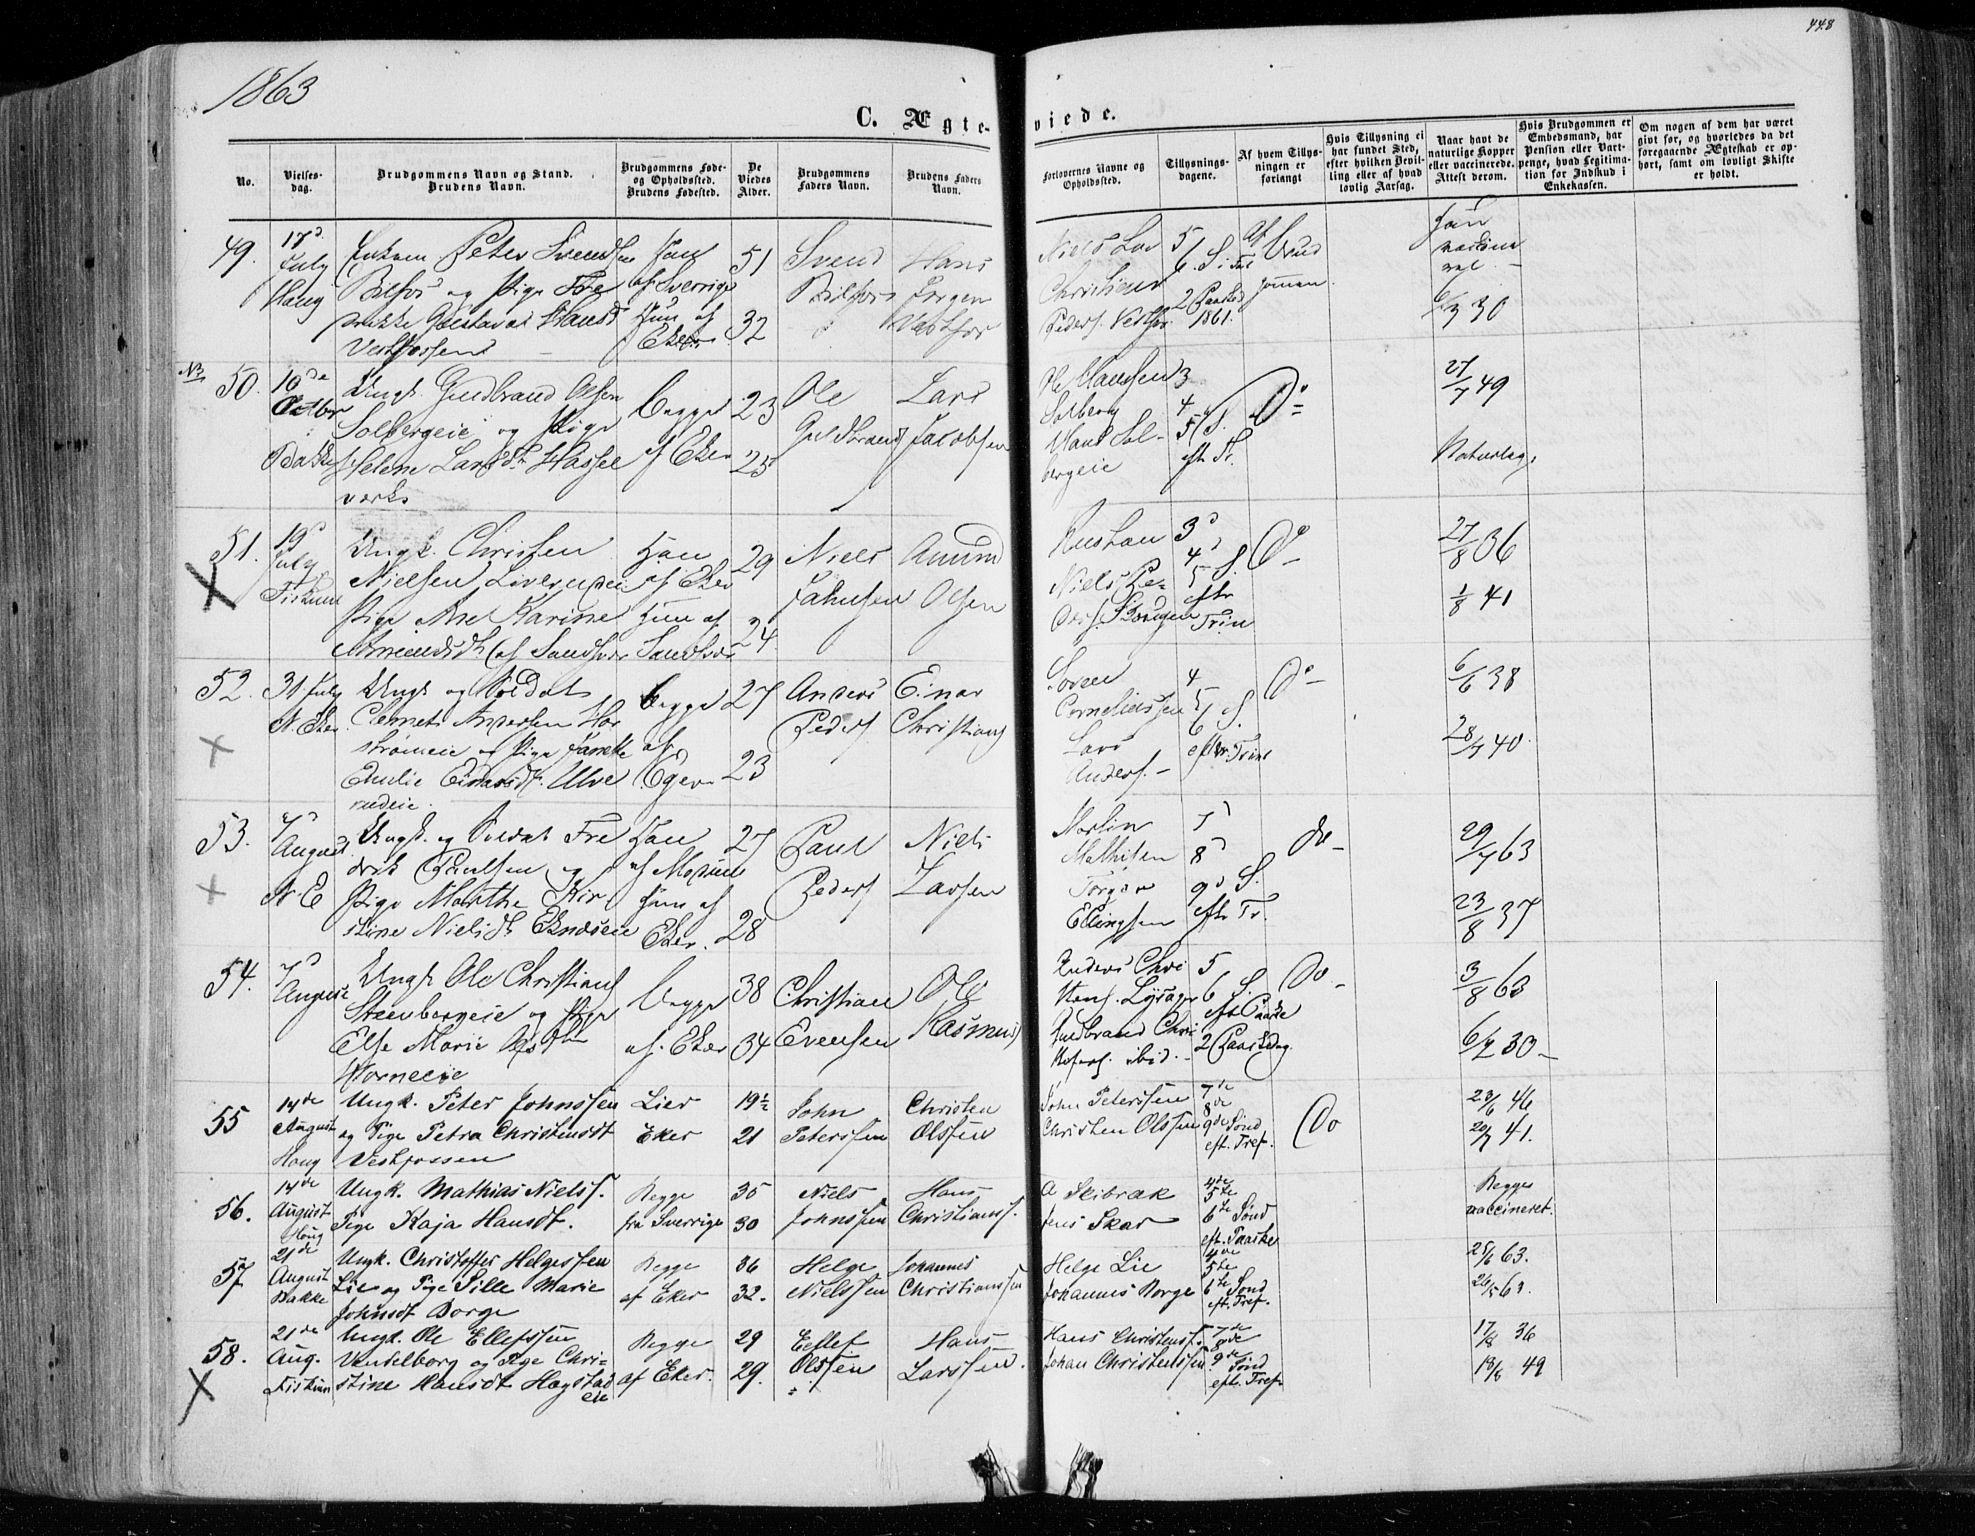 1863
448
C. Ægte-
viede.
No.
Vielses-
dag.
Brudgommens Navn og Stand.
Brudens Navn.
Brudgommens Føde-
og Opholdssted.
Brudens Fødested.
De
Viedes
Alder.
Brudgommens
Faders Navn.
Brudens Faders
Navn.
Forlovernes Navne og
Opholdssted.
Tillysnings-
dagene.
Af hvem Tillys-
ningen er
forlangt
Hvis Tillysning ei
har fundet Sted,
efter hvilken Bevil-
ling eller af hvad
lovlig Aarsag.
Naar havt de
naturlige Kopper
eller vaccinerede.
Attest derom.
Hvis Brudgommen er
Embedsmand, har
Pension eller Vart-
penge, hvad Legitima-
tion for Indskud i
Enkekassen.
Om nogen af dem har været
gift før, og hvorledes da det
foregaaende Ægteskab er op-
hørt, samt om lovligt Skifte
er holdt.
49.
17d
July
Haug
Enkem Peter Svendsen
og Pige Fre
drikke Gustava Hansd
Vestfossen
Han
af Sverrige
Hun af
Eker
51
32
Svend
Hans
Jørgen
Niels
Christians
Peders. Vestfos.
5
6. S. i
2 Paaskd
1861.
Af Brud
gommen
Han
30
N3
50.
10de
Octbr
Bakke
Ungk. Gudbrand Olsen
Solbergeie og Pige
Helene Larsdt. Hassel
verks
begge
af Eker
23
25
Ole
Guldbrands
Lars
Jacobsen
Ole Hanssen
Solberg
Hans Sol-
bergeie
3
4
5 S.
eft. Tr.
Do
27/7 49
Naturlig.
51.
19d
July
Fiskum
Ungk. Christen
Nielsen
Pige Ane Karine
Amundsdt. (af Sandsvær
Han
af Eker
Hun af
Sandsvær
29
24
Niels
Jahnsen
Amund
Olsen
Niels Pe-
ders.
3d
4d
5 S.
eftr
Trin
Do
27/8 36
1/8 41
52.
31 July
N. Eker
Ungk og Soldat
Clemet Andersen Hor
strømeie og Pige Janikke
Emilie Einarsdt. Ulve
rudeie.
begge
af
Eger
27
23
Anders
Peders
Einar
Christians
Søren
Corneliussen
Lars
Anders.
4
5 S.
6
efter Trin
Do
6/6 38
28/7 40.
53.
7d
August
N E
Ungk. og Soldat Fre
drik Paulsen og
Pige Marthe Kir
stine Nielsdt.
Han
af Modum
Hun af
Eker.
27
28
Paul
Peders
Niels
Larsen
Martin
Mathisen
Torger
Ellingsen
7d
8d
9d S.
eftr Tr.
Do
29/7 63
23/8 37
54.
7d
August
Ungk Ole Christians
Steenbergeie og Pige
Else Marie
Horneeie
begge
af. Eker
38
34
Christian
Evensen
Ole
Rasmus
Anders Chri
stens.
Guldbrand Chri
stofers. ibid.
5
6 S.
eft Paaske
2 Paaskedag.
Do
3/8 63
30
55
14de
August
Houg
Ungk. Peter Johnssen
og Pige Petra Christensdt
Vestfossen
Lier
Eker
19½
21
John
Peterssen
Christen
Olssen
John Peterssen
Christen Olssen
7de
8de
9de Sønd
eft. Tref.
Do
23/6 46
20/7 41.
56.
14de
August
Houg
Ungk. Mathias Nielss.
Pige Kaja Hansdt.
Begge
fra Sverrige
35
30
Niels
Johnssen
Hans
Christianss.
A Skibræk
Jens Skar
4de
5te
6te Sønd
eft. Paaske
Begge
vaccineret.
57
21de
August
Bakke
Ungk. Christoffer Helgessen
Lie og Pige Sille Marie
Johnsdt Borge
Begge
af Eker
36
32.
Helge
Nielssen
Johannes
Christianssen
Helge Lie
Johannes Borge
4de
5te
6te Sønd
eft. Tref.
25/6 63.
26/5 63.
58.
21de
Aug.
Fiskum
Ungk. Ole Ellefssen
Vendelborg og Pige Chri-
stine Hansdt Hagstad
eie
Begge
af Eker.
29
29.
Ellef
Olssen
Hans
Larssen.
Hans Christenss.
Johan Christenssen
7de
8de
9de Sønd
eft. Tref
17/8 36
18/6 49